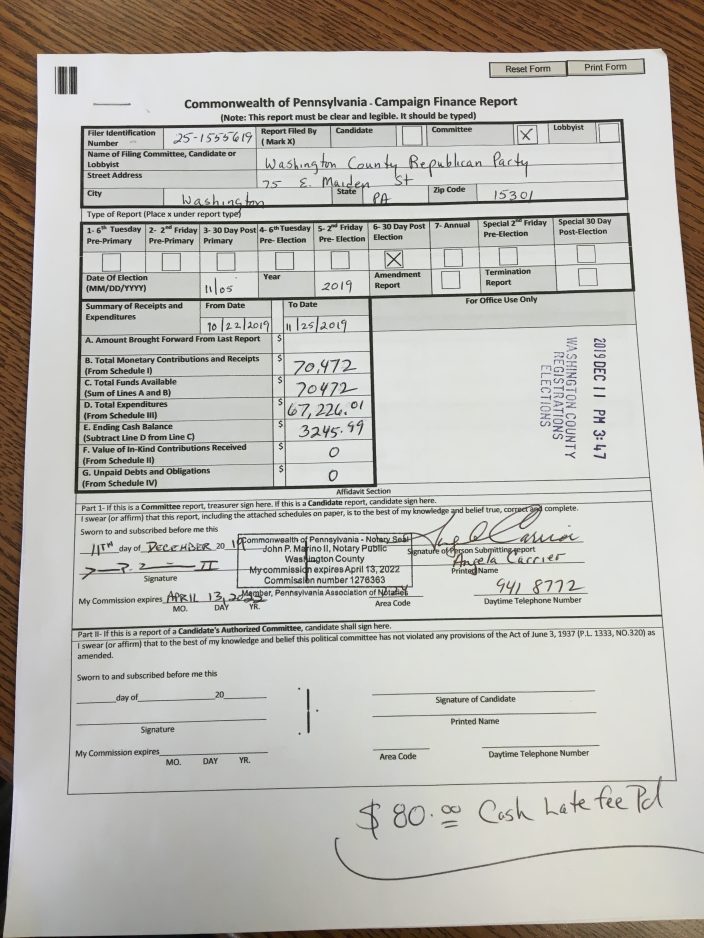 Reset Form Print Form
Commonwealth of Pennsylvania - Campaign Finance Report
(Note: This report must be clear and legible. It should be typed)
Filer Identification Number 25-1555619 Report Filed By ( Mark X) Candidate Committee X Lobbyist
Name of Filing Committee, Candidate or Lobbyist Washington County Republican Party
Street Address 75 E. Maiden St
City Washington State PA Zip Code 15301
Type of Report (Place x under report type)
1- 6th Tuesday Pre-Primary 2- 2nd Friday Pre-Primary 3- 30 Day Post Primary 4- 6th Tuesday Pre- Election 5- 2nd Friday Pre- Election 6- 30 Day Post Election 7- Annual Special 2nd Friday Pre-Election Special 30 Day Post-Election
X
Date Of Election (MM/DD/YYYY) 11/05 Year 2019 Amendment Report Termination Report
Summary of Receipts and Expenditures From Date 10/22/2019 To Date 11/25/2019 For Office Use Only
A. Amount Brought Forward From Last Report $
B. Total Monetary Contributions and Receipts (From Schedule I) $ 70,472
C. Total Funds Available (Sum of Lines A and B) $ 70472
D. Total Expenditures (From Schedule III) $ 67,226.01
E. Ending Cash Balance (Subtract Line D from Line C) $ 3245.99
F. Value of In-Kind Contributions Received (From Schedule II) $ 0
G. Unpaid Debts and Obligations (From Schedule IV) $ 0
2019 DEC 11 PM 3:47
WASHINGTON COUNTY
REGISTRATIONS
ELECTIONS
Affidavit Section
Part 1- If this is a Committee report, treasurer sign here. If this is a Candidate report, candidate sign here.
I swear (or affirm) that this report, including the attached schedules on paper, is to the best of my knowledge and belief true, correct and complete.
Sworn to and subscribed before me this
11TH day of DECEMBER 2019
Signature
My Commission expires APRIL 13, 2022
MO. DAY YR.
Commonwealth of Pennsylvania - Notary Seal
John P. Marino II, Notary Public
Washington County
My commission expires April 13, 2022
Commission number 1276363
Member, Pennsylvania Association of Notaries
Angela Carrier
Signature of Person Submitting report
Angela Carrier
Printed Name
941 8772
Area Code Daytime Telephone Number
Part II- If this is a report of a Candidate's Authorized Committee, candidate shall sign here.
I swear (or affirm) that to the best of my knowledge and belief this political committee has not violated any provisions of the Act of June 3, 1937 (P.L. 1333, NO.320) as
amended.
Sworn to and subscribed before me this
day of 20
Signature
My Commission expires
MO. DAY YR.
Signature of Candidate
Printed Name
Area Code Daytime Telephone Number
$ 80.00 Cash Late fee Pd